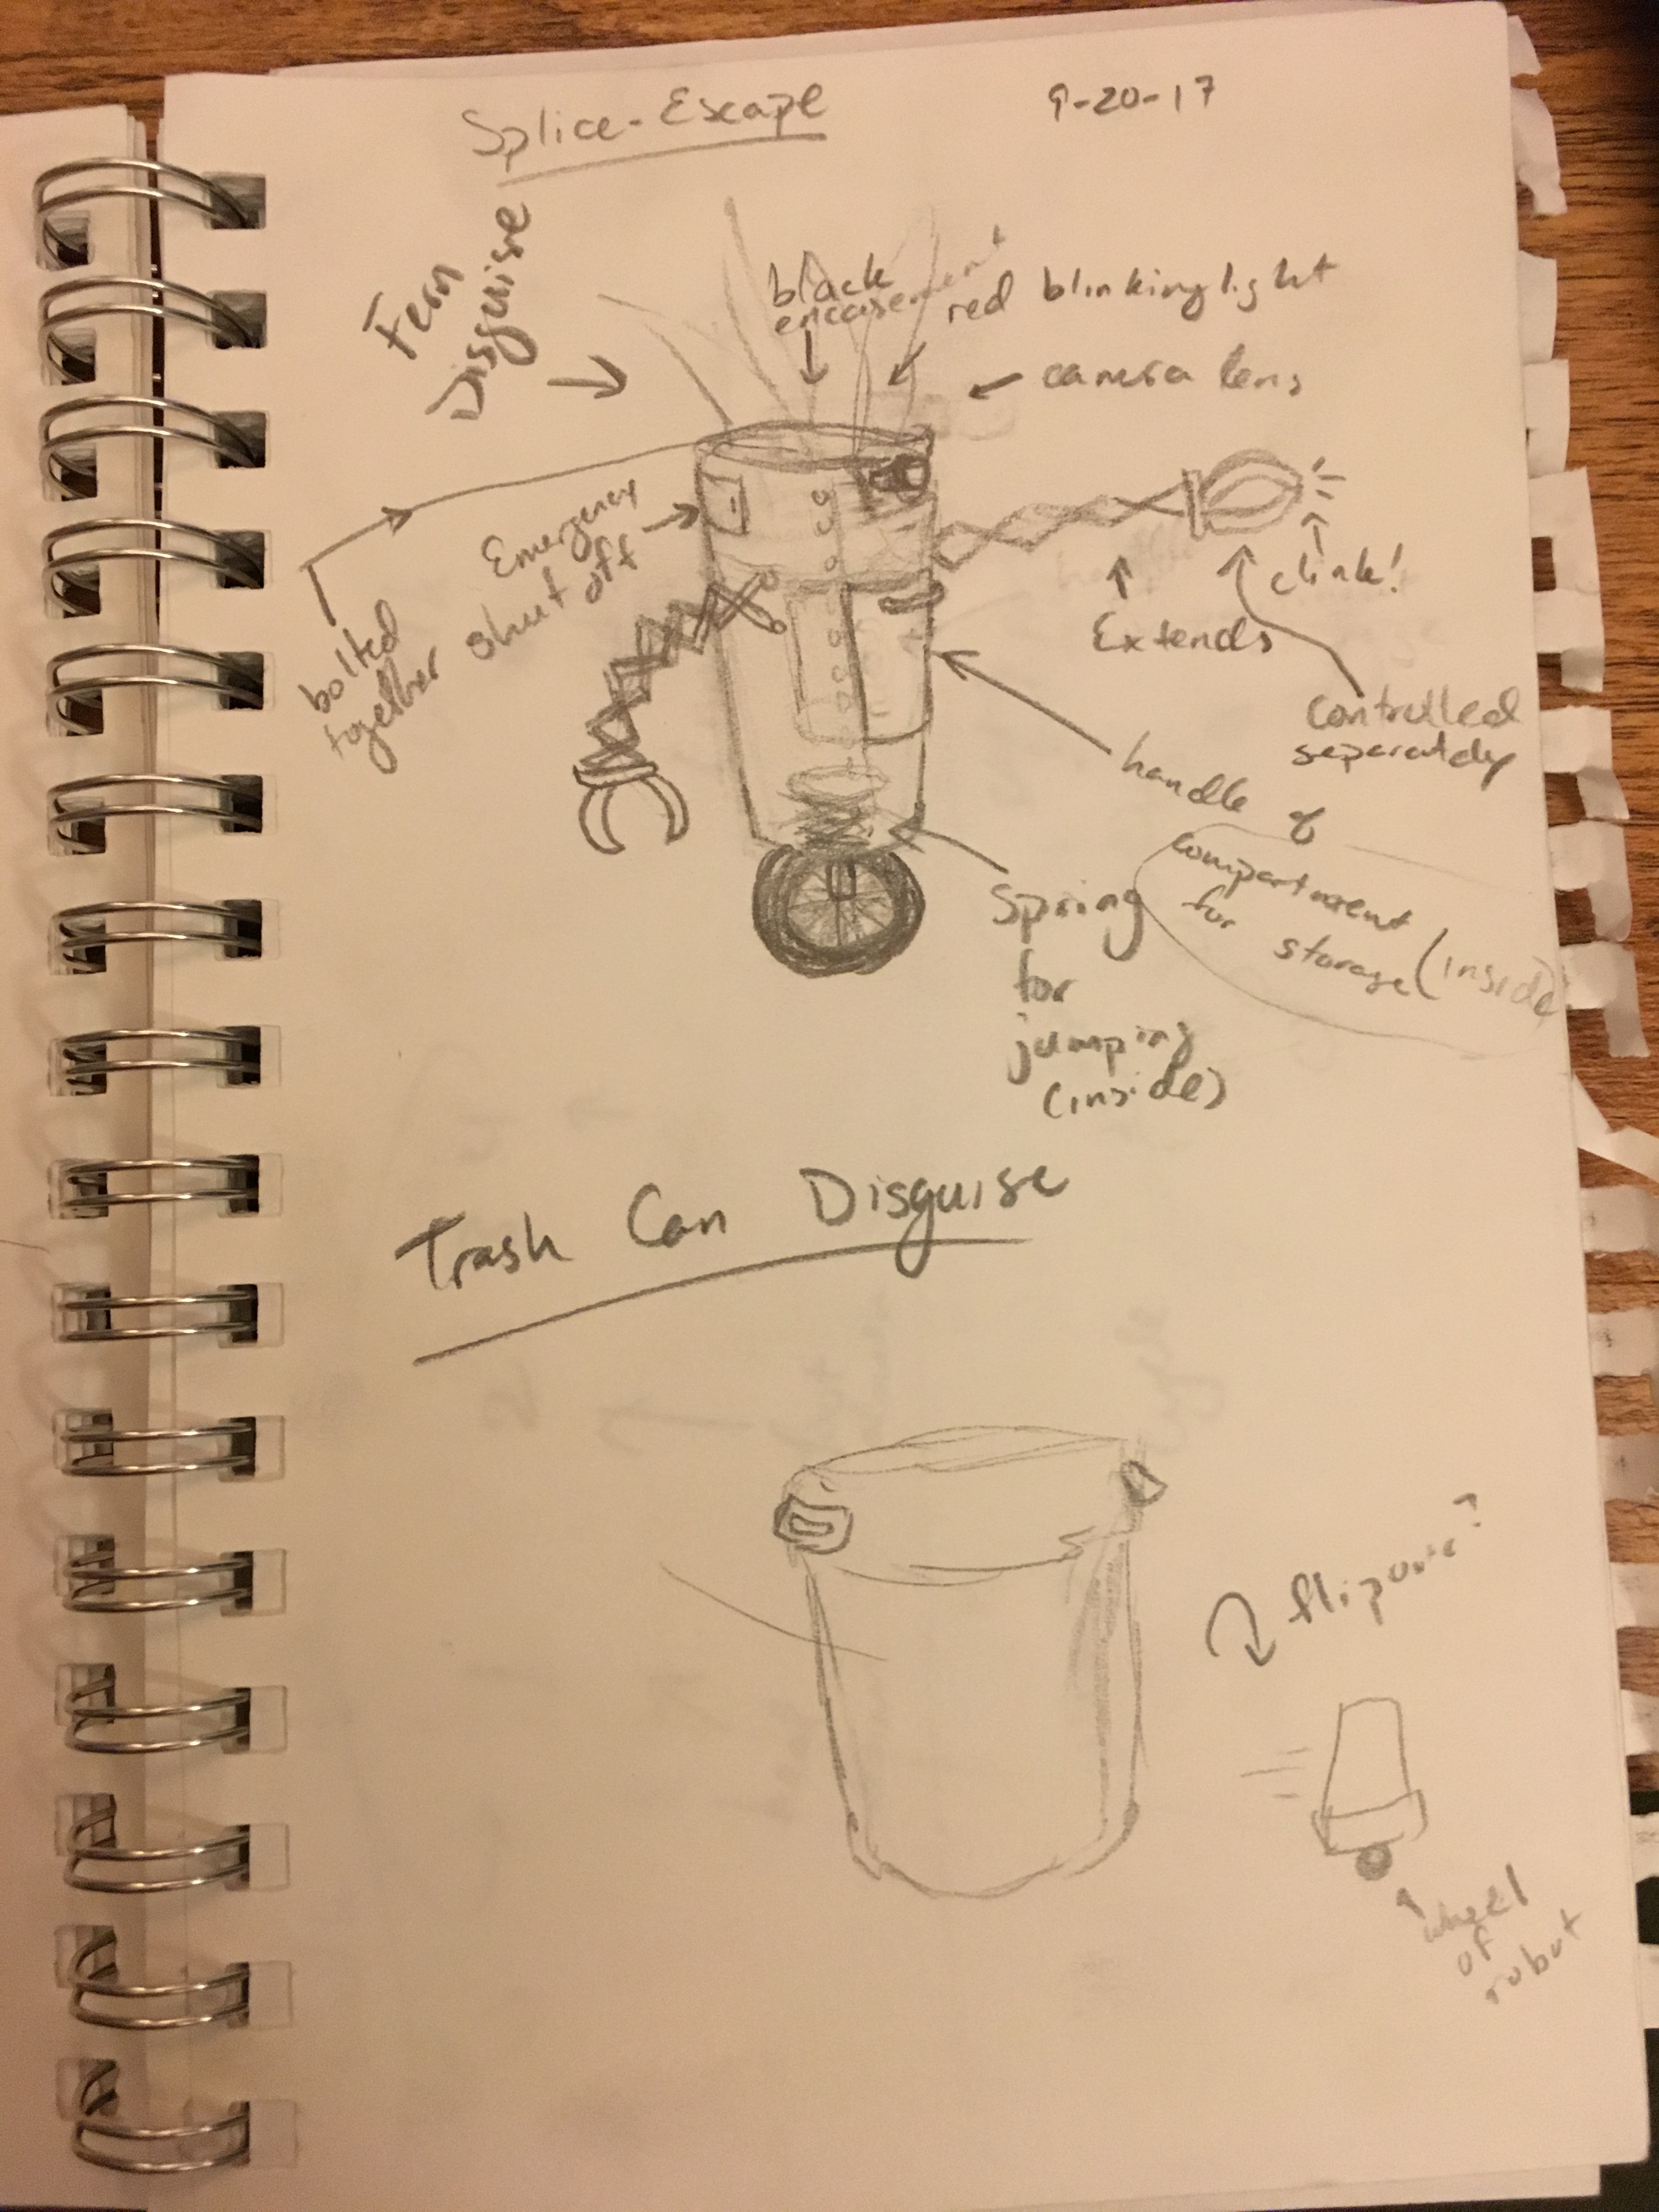 Splice-Escape
9-20-17
Fern
Disguise
black
encasement
red blinking light
camera lens
Emergency
shut off
bolted
together
clink!
Extends
controlled
separately
handle &
compartment
for
storage (inside)
Spring
for
jumping
(inside)
Trash Can Disguise
flip over?
wheel
of
robot